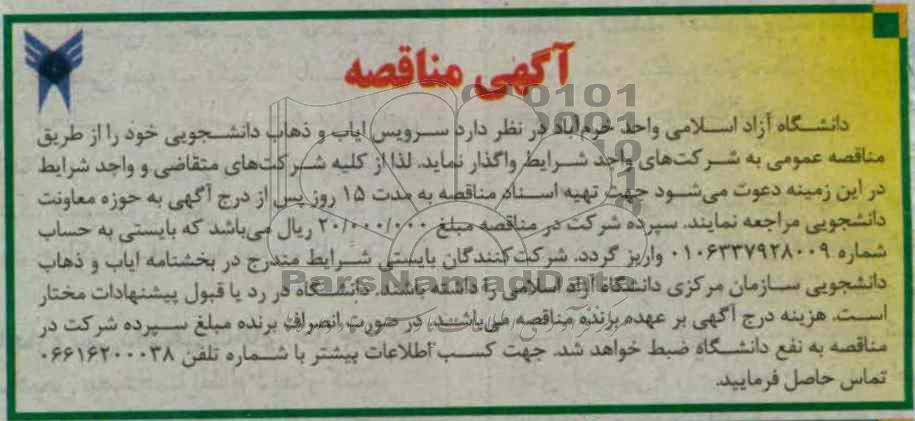 آگهی مناقصه
دانشگاه آزاد اسلامی واحد خرم‌آباد در نظر دارد سرویس ایاب و ذهاب دانشجویی خود را از طریق
مناقصه عمومی به شرکت‌های واجد شرایط واگذار نماید. لذا از کلیه شرکت‌های متقاضی و واجد شرایط
در این زمینه دعوت می‌شود جهت تهیه اسناد مناقصه به مدت ۱۵ روز پس از درج آگهی به حوزه معاونت
دانشجویی مراجعه نمایند. سپرده شرکت در مناقصه مبلغ ۲۰/۰۰۰/۰۰۰ ریال می‌باشد که بایستی به حساب
شماره ۰۱۰۶۳۳۷۹۲۸۰۰۹ واریز گردد. شرکت‌کنندگان بایستی شرایط مندرج در بخشنامه ایاب و ذهاب
دانشجویی سازمان مرکزی دانشگاه آزاد اسلامی را داشته باشند. دانشگاه در رد یا قبول پیشنهادات مختار
است. هزینه درج آگهی بر عهده برنده مناقصه می‌باشد. در صورت انصراف برنده مبلغ سپرده شرکت در
مناقصه به نفع دانشگاه ضبط خواهد شد. جهت کسب اطلاعات بیشتر با شماره تلفن ۰۶۶۱۶۲۰۰۰۳۸
تماس حاصل فرمایید.
ParsNamadData